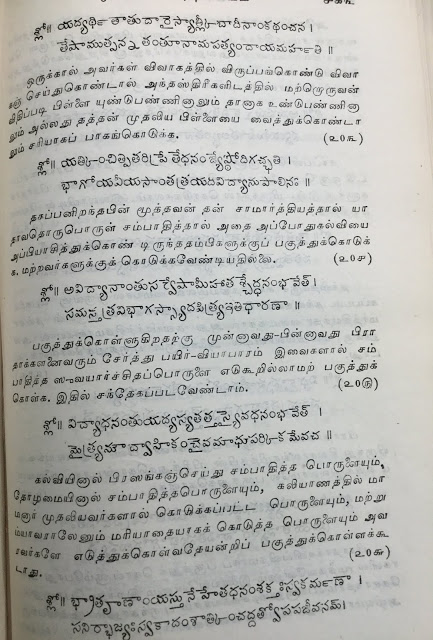 శ్లో॥ యద్యర్థి తాతుదారైస్యాల్క్లీబాదీనాంకథంచన।
తేషాముత్పన్న తంతూనామపత్యందాయమర్హతి॥
ஒருக்கால் அவர்கள் விவாகத்தில் விருப்பங்கொண்டு விவா
கஞ் செய்துகொண்டால் அந்தஸ்திரீகளிடத்தில் மற்றொருவன்
விதிப்படி பிள்ளை யுண்டுபண்ணினாலும் தானாக உண்டுபண்ணினா
லும் அல்லது தத்தன் முதலிய பிள்ளையை வைத்துக்கொண்டா
லும் சரியாகப் பாகங்கொடுக்க. (௨0௩)
శ్లో॥ యత్కించిత్పితరిప్రేతేధనంజ్యేష్ఠోధిగచ్ఛతి।
భాగోయవీయసాంతత్రయదివిద్యానుపాలినః॥
தகப்பனிறந்தபின் மூத்தவன் தன் சாமார்த்தியத்தால் யா
தாவதொருபொருள் சம்பாதித்தால் அதை அப்போதுகல்வியை
அப்பியாசித்துக்கொண் டிருந்ததம்பிகளுக்குப் பகுத்துக்கொடுக்
க. மற்றவர்களுக்குக் கொடுக்கவேண்டியதில்லை. (௨0௪)
శ్లో॥ అవిద్యానాంతుసర్వేషామీహాతశ్చేద్ధనంభవేత్।
సమస్తత్రవిభాగస్స్యాదపిత్ర్యఇతిధారణా॥
பகுத்துக்கொள்ளுகிறதற்கு முன்னாவது-பின்னாவது பிரா
தாக்களனைவரும் சேர்த்து பயிர்-வியாபாரம் இவைகளால் சம்
பாதித்த ஸுவயார்ச்சிதப்பொருளை எடுகூறில்லாமற் பகுத்துக்
கொள்க. இதில் சந்தேகப்படவேண்டாம். (௨0௫)
శ్లో॥ విద్యాధనంతుయద్యస్యతత్తస్యైవధనంభవేత్।
మైత్ర్యమౌద్వాహికంచైవమాధుపర్కికమేవచ॥
கல்வியினால் பிரஸங்கஞ்செய்து சம்பாதித்த பொருளையும்,
தோழமையினால் சம்பாதித்தபொருளையும், கலியாணத்தில் மா
மனார் முதலியவர்களால் கொடுக்கப்பட்ட பொருளையும், மற்று
மியாவராலேனும் மரியாதையாகக் கொடுத்த பொருளையும் அவ
ரவர்களே எடுத்துக்கொள்வதேயன்றிப் பகுத்துக்கொள்ளக்கூ
டாது. (௨0௬)
శ్లో॥ భ్రాతౄణాంయస్తునేహేతధనంశక్తఃస్వకర్మణా।
సనిర్భాజ్యఃస్వకాదంశాత్కించిద్దత్వోపజీవనమ్।